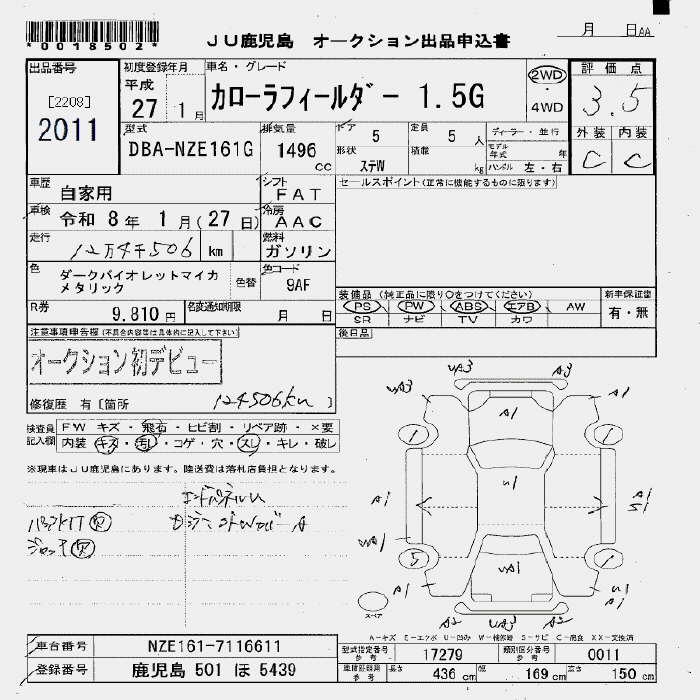 *0018502*
JU鹿児島 オークション出品申込書
月 日AA
出品番号
[2208]
2011
初度登録年月
平成
27 1月
車名・グレード
カローラフィールダー 1.5G
2WD
4WD
評価点
3.5
外装 内装
C C
型式
DBA-NZE161G
排気量
1496
cc
ドア 5
定員 5 人
形状 ステW
積載 kg
ディーラー・並行
モデル年式 年
ハンドル 左・右
車歴
自家用
シフト
FAT
セールスポイント(正常に機能するものに限ります)
車検
令和 8年 1月(27日)
冷房
AAC
走行
12万4千506 km
燃料
ガソリン
色
ダークバイオレットマイカ
メタリック
色替
色コード
9AF
R券
9,810円
名変通知期限
月 日
装備品(純正品に限り○をつけてください)
PS PW ABS エアB AW
SR ナビ TV カワ
新車保証書
有・無
後日品
注意事項申告欄(不具合内容等は具体的に記入して下さい)
オークション初デビュー
修復歴 有[箇所 124506km ]
検査員記入欄
FW キズ・飛石・ヒビ割・リペア跡・×要
内装・キズ・汚し・コゲ・穴・スレ・キレ・破レ
※現車はJU鹿児島にあります。陸送費は落札店負担となります。
エンドパネルU
A3
A1
1
A1
U1
A1
A1
S1
5
1
A1
U1
A1
A2
A2
スペア
A-キズ E-エクボ U-凹み W-補修跡 S-サビ C-腐食 XX-交換済
車台番号
NZE161-7116611
登録番号
鹿児島 501 ほ 5439
型式指定番号
参考
17279
類別区分番号
参考
0011
長さ 436 cm
幅 169 cm
高さ 150 cm